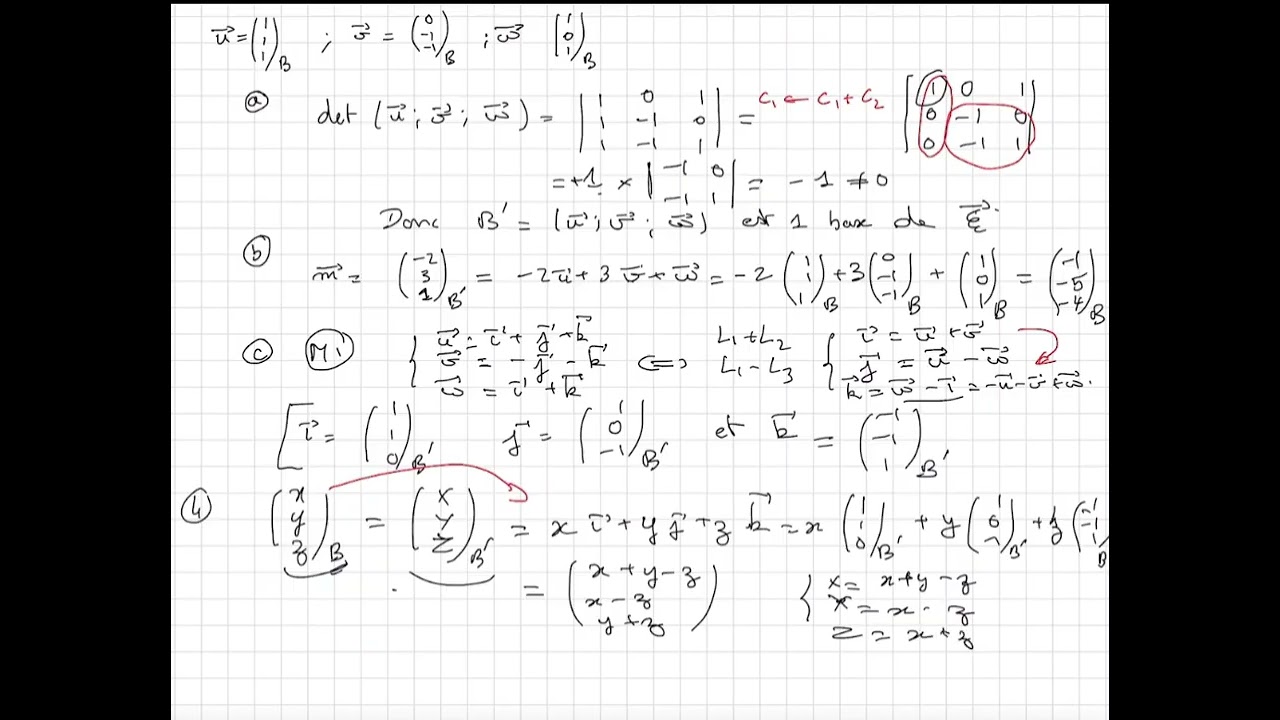 u⃗ = (1 1 1)_B ; v⃗ = (0 -1 -1)_B ; w⃗ (1 0 1)_B
ⓐ det (u⃗ ; v⃗ ; w⃗) = |1 0 1 / 1 -1 0 / 1 -1 1| = C₁ ← C₁ + C₂ |1 0 1 / 0 -1 0 / 0 -1 1|
= +1 × |-1 0 / -1 1| = -1 ≠ 0
Donc B' = (u⃗ ; v⃗ ; w⃗) est 1 base de ξ⃗.
ⓑ m⃗ = (-2 3 1)_B' = -2u⃗ + 3v⃗ + w⃗ = -2 (1 1 1)_B + 3 (0 -1 -1)_B + (1 0 1)_B = (-1 -5 -4)_B
ⓒ M1 { u⃗ = i⃗ + j⃗ + k⃗ ⟺ L₁+L₂ { i⃗ = u⃗ + v⃗
v⃗ = -j⃗ - k⃗ L₁-L₃ j⃗ = u⃗ - w⃗
w⃗ = i⃗ + k⃗ k⃗ = w⃗ - i⃗ = -u⃗ - v⃗ + w⃗.
i⃗ = (1 1 0)_B' j⃗ = (1 0 -1)_B' et k⃗ = (-1 -1 1)_B'
④ (x y z)_B = (X Y Z)_B' = x i⃗ + y j⃗ + z k⃗ = x (1 1 0)_B' + y (1 0 -1)_B' + z (-1 -1 1)_B
= (x + y - z / x - z / y + z) { X = x + y - z
Y = x - z
Z = x + z